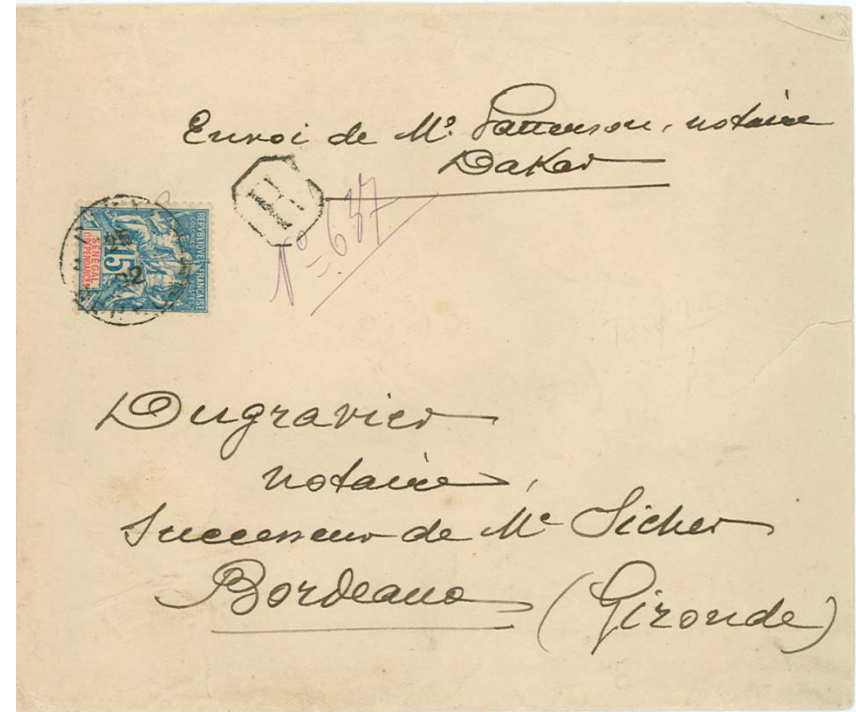 Envoi de Me. Patterson, notaire
Dakar
R
No 637
REPUBLIQUE FRANCAISE
COLONIES
POSTES
SENEGAL
ET DEPENDANCES
15
02
Dugravier
notaire,
Successeur de Me Sicher
Bordeaux (Gironde)